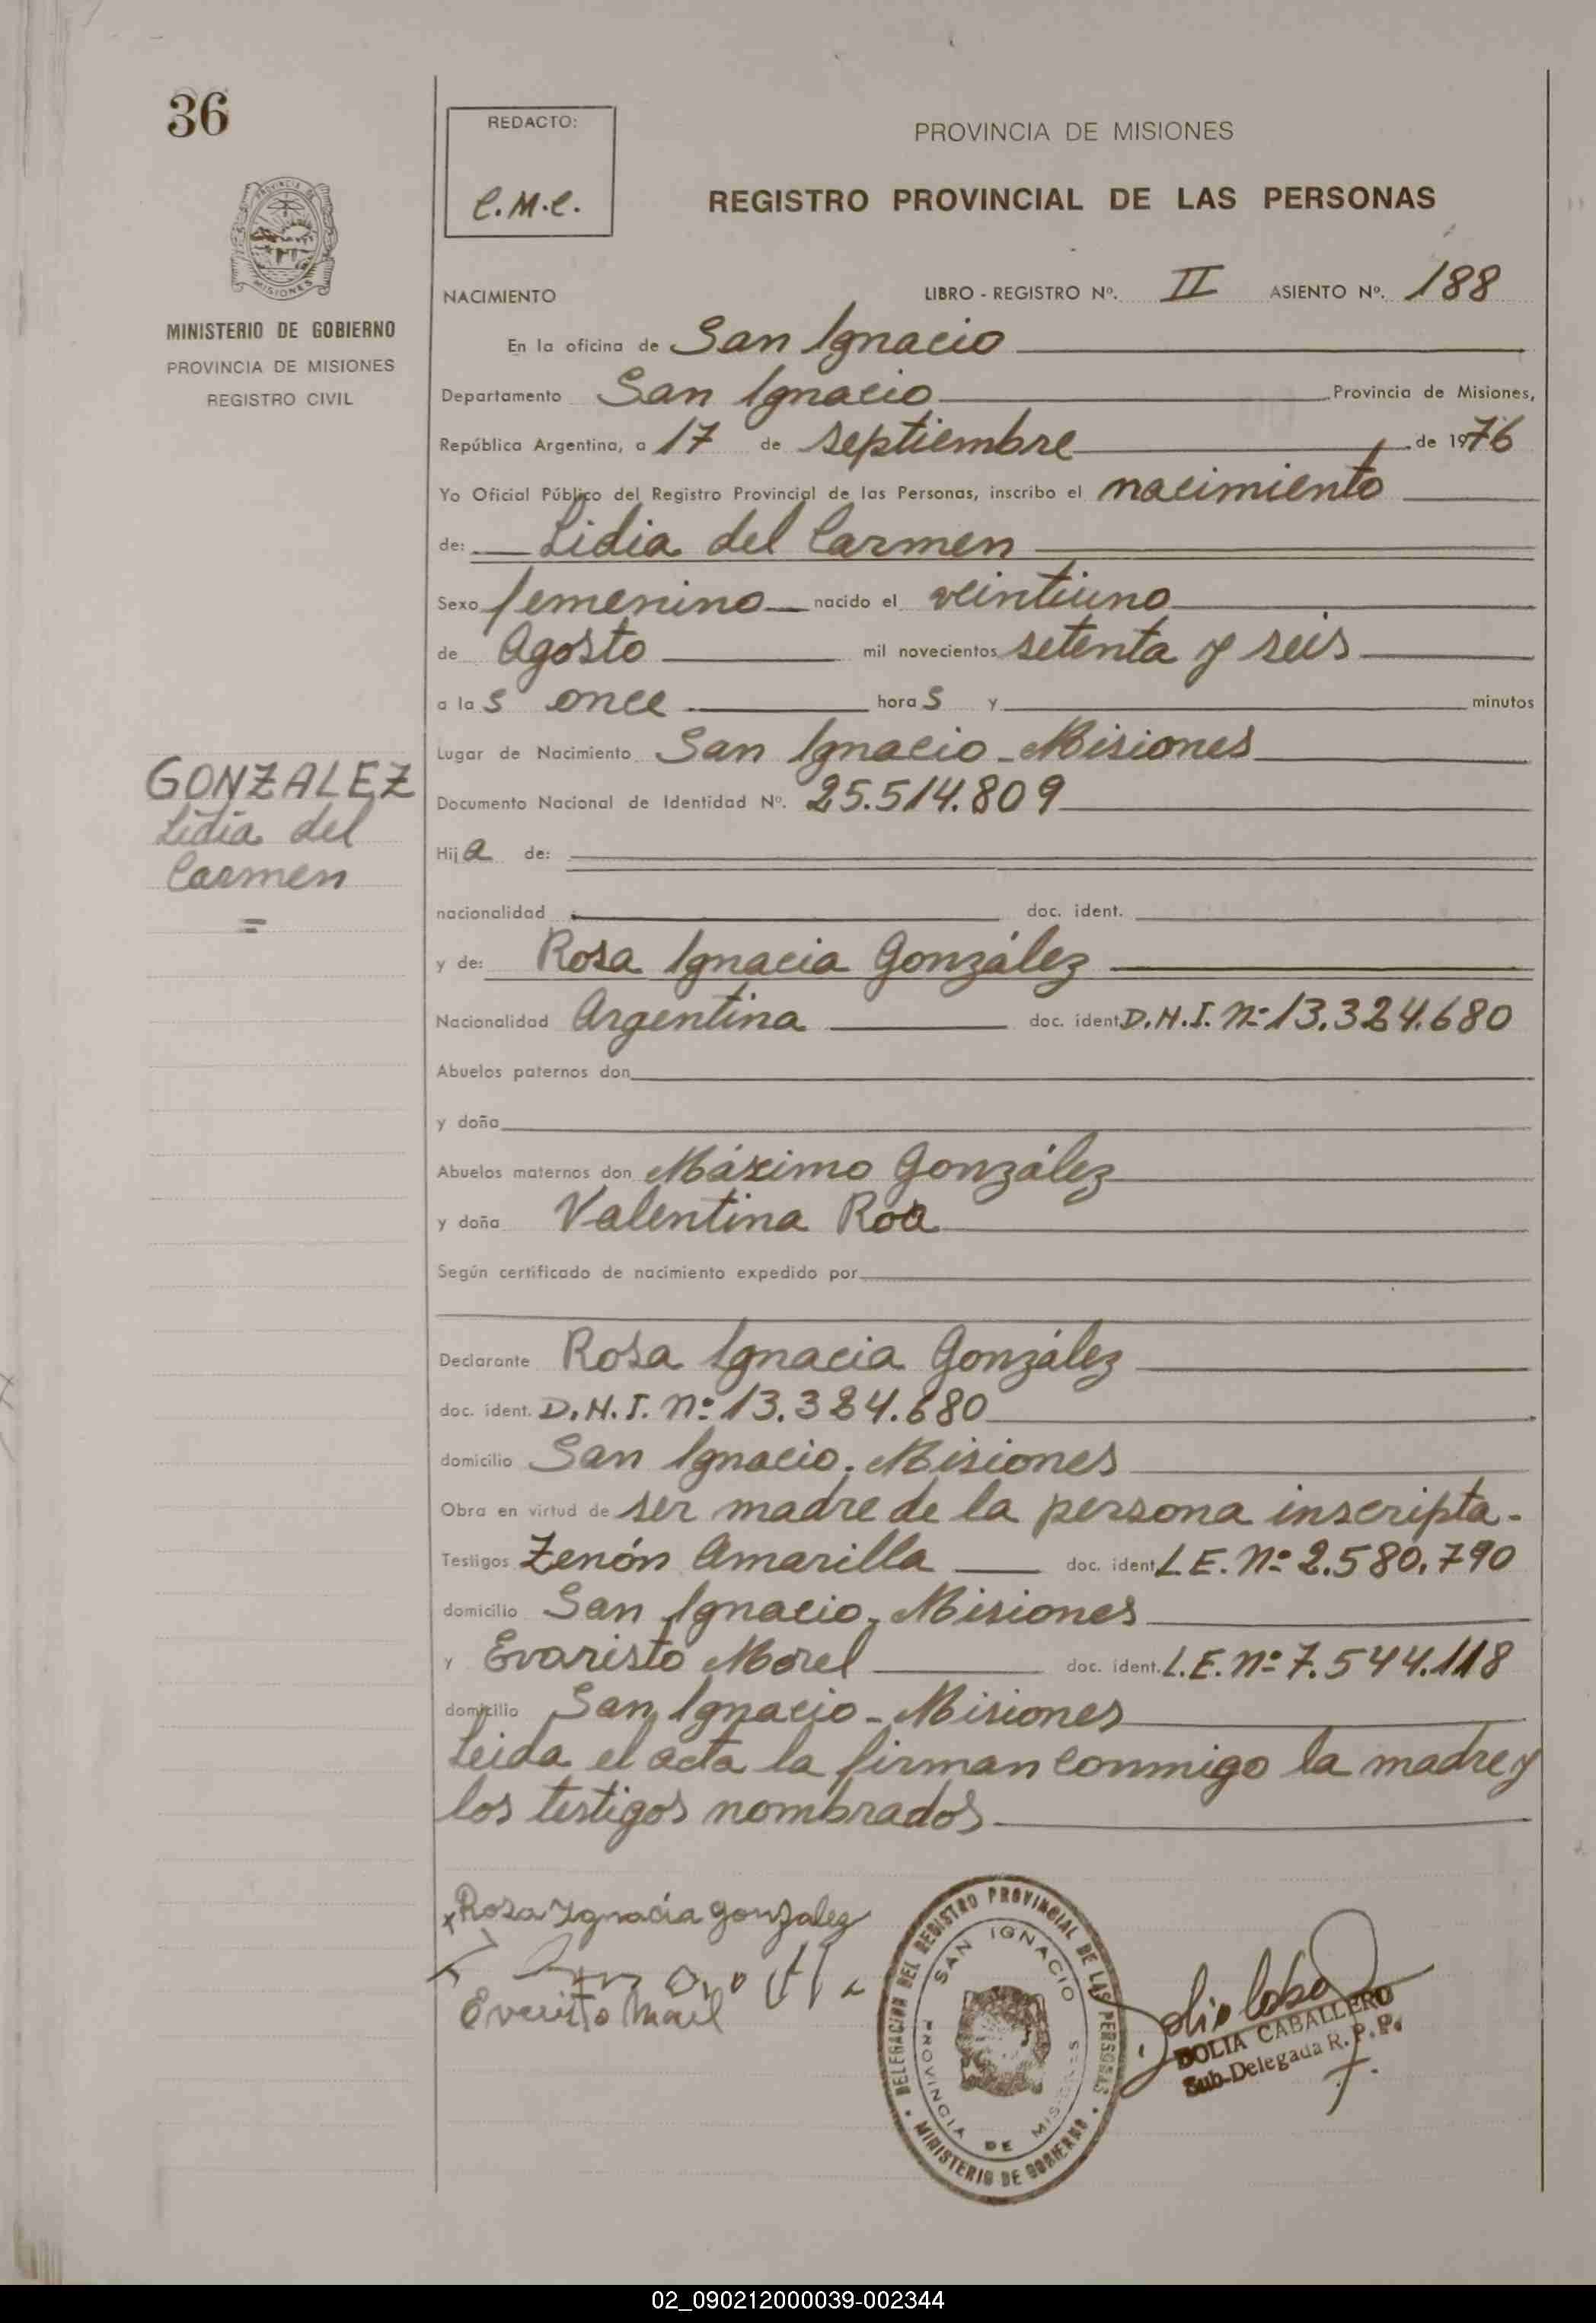 36
REDACTO:
C.M.C.
PROVINCIA DE MISIONES
REGISTRO PROVINCIAL DE LAS PERSONAS
MISIONES
MINISTERIO DE GOBIERNO
PROVINCIA DE MISIONES
REGISTRO CIVIL
NACIMIENTO LIBRO - REGISTRO Nº. II ASIENTO Nº. 188
En la oficina de San Ignacio
Departamento San Ignacio Provincia de Misiones,
República Argentina, a 17 de septiembre de 1976
Yo Oficial Público del Registro Provincial de las Personas, inscribo el nacimiento
de: Lidia del Carmen
Sexo femenino nacido el veintiuno
de Agosto mil novecientos setenta y seis
a las once horas y minutos
Lugar de Nacimiento San Ignacio - Misiones
GONZALEZ
Lidia del
Carmen
Documento Nacional de Identidad Nº. 25.514.809
Hija de:
nacionalidad doc. ident.
y de: Rosa Ignacia González
Nacionalidad Argentina doc. ident. D.N.I. Nº 13.324.680
Abuelos paternos don
y doña
Abuelos maternos don Máximo González
y doña Valentina Roa
Según certificado de nacimiento expedido por
Declarante Rosa Ignacia González
doc. ident. D.N.I. Nº 13.324.680
domicilio San Ignacio. Misiones
Obra en virtud de ser madre de la persona inscripta.
Testigos Zenón Amarilla doc. ident. L.E. Nº 2.580.790
domicilio San Ignacio, Misiones
y Evaristo Morel doc. ident. L.E. Nº 7.544.118
domicilio San Ignacio - Misiones
Leida el acta la firman conmigo la madre y
los testigos nombrados
x Rosa Ignacia gonzalez
DELEGACION DEL REGISTRO PROVINCIAL DE LAS PERSONAS
SAN IGNACIO
PROVINCIA DE MISIONES
MINISTERIO DE GOBIERNO
DOLIA CABALLERO
Sub-Delegada R. P. P.
02_090212000039-002344